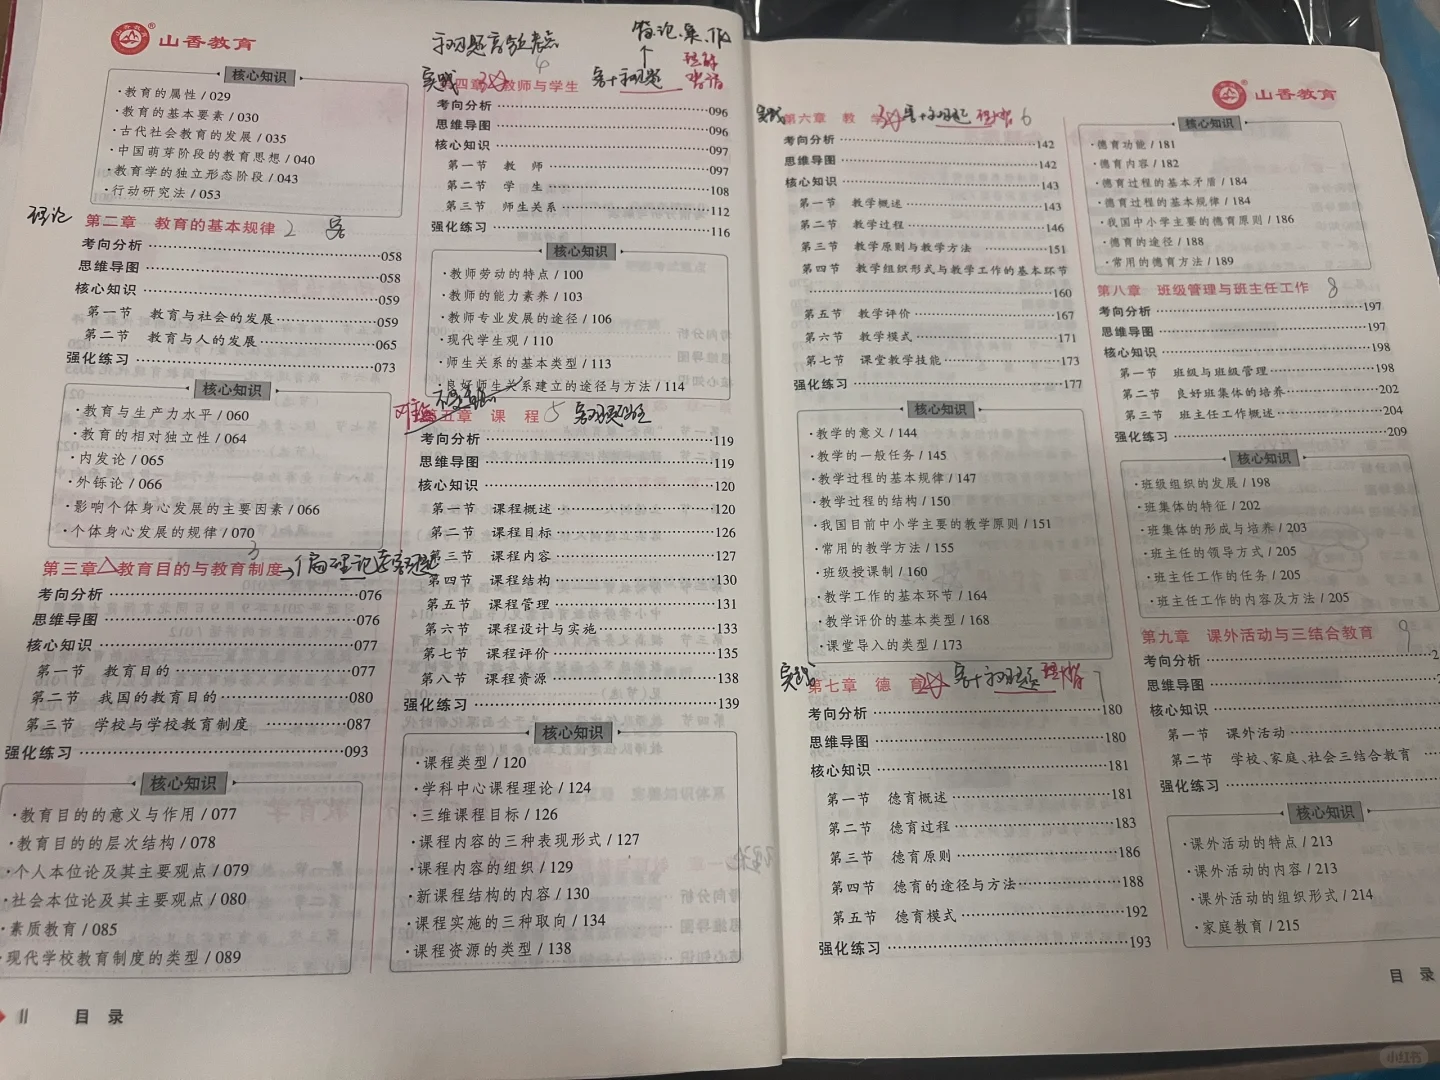 山香教育
核心知识
·教育的属性 / 029
·教育的基本要素 / 030
·古代社会教育的发展 / 035
·中国萌芽阶段的教育思想 / 040
·教育学的独立形态阶段 / 043
·行动研究法 / 053
理论
第二章 教育的基本规律 2 客
考向分析 058
思维导图 058
核心知识 059
第一节 教育与社会的发展 059
第二节 教育与人的发展 065
强化练习 073
核心知识
·教育与生产力水平 / 060
·教育的相对独立性 / 064
·内发论 / 065
·外铄论 / 066
·影响个体身心发展的主要因素 / 066
·个体身心发展的规律 / 070
3
第三章 教育目的与教育制度
考向分析 076
思维导图 076
核心知识 077
第一节 教育目的 077
第二节 我国的教育目的 080
第三节 学校与学校教育制度 087
强化练习 093
核心知识
·教育目的的意义与作用 / 077
·教育目的的层次结构 / 078
·个人本位论及其主要观点 / 079
·社会本位论及其主要观点 / 080
·素质教育 / 085
·现代学校教育制度的类型 / 089
II 目 录
4
实践
四章 教师与学生
考向分析 096
思维导图 096
核心知识 097
第一节 教 师 097
第二节 学 生 108
第三节 师生关系 112
强化练习 116
核心知识
·教师劳动的特点 / 100
·教师的能力素养 / 103
·教师专业发展的途径 / 106
·现代学生观 / 110
·师生关系的基本类型 / 113
·良好师生关系建立的途径与方法 / 114
第五章 课 程 5
考向分析 119
思维导图 119
核心知识 120
第一节 课程概述 120
第二节 课程目标 126
第三节 课程内容 127
第四节 课程结构 130
第五节 课程管理 131
第六节 课程设计与实施 133
第七节 课程评价 135
第八节 课程资源 138
强化练习 139
核心知识
·课程类型 / 120
·学科中心课程理论 / 124
·三维课程目标 / 126
·课程内容的三种表现形式 / 127
·课程内容的组织 / 129
·新课程结构的内容 / 130
·课程实施的三种取向 / 134
·课程资源的类型 / 138
实践
第六章 教 6
考向分析 142
思维导图 142
核心知识 143
第一节 教学概述 143
第二节 教学过程 146
第三节 教学原则与教学方法 151
第四节 教学组织形式与教学工作的基本环节
160
第五节 教学评价 167
第六节 教学模式 171
第七节 课堂教学技能 173
强化练习 177
核心知识
·教学的意义 / 144
·教学的一般任务 / 145
·教学过程的基本规律 / 147
·教学过程的结构 / 150
·我国目前中小学主要的教学原则 / 151
·常用的教学方法 / 155
·班级授课制 / 160
·教学工作的基本环节 / 164
·教学评价的基本类型 / 168
·课堂导入的类型 / 173
实践
第七章 德 育 7
考向分析 180
思维导图 180
核心知识 181
第一节 德育概述 181
第二节 德育过程 183
第三节 德育原则 186
第四节 德育的途径与方法 188
第五节 德育模式 192
强化练习 193
山香教育
核心知识
·德育功能 / 181
·德育内容 / 182
·德育过程的基本矛盾 / 184
·德育过程的基本规律 / 184
·我国中小学主要的德育原则 / 186
·德育的途径 / 188
·常用的德育方法 / 189
第八章 班级管理与班主任工作 8
考向分析 197
思维导图 197
核心知识 198
第一节 班级与班级管理 198
第二节 良好班集体的培养 202
第三节 班主任工作概述 204
强化练习 209
核心知识
·班级组织的发展 / 198
·班集体的特征 / 202
·班集体的形成与培养 / 203
·班主任的领导方式 / 205
·班主任工作的任务 / 205
·班主任工作的内容及方法 / 205
第九章 课外活动与三结合教育 9
考向分析
思维导图
核心知识
第一节 课外活动
第二节 学校、家庭、社会三结合教育
强化练习
核心知识
·课外活动的特点 / 213
·课外活动的内容 / 213
·课外活动的组织形式 / 214
·家庭教育 / 215
目 录
小红书